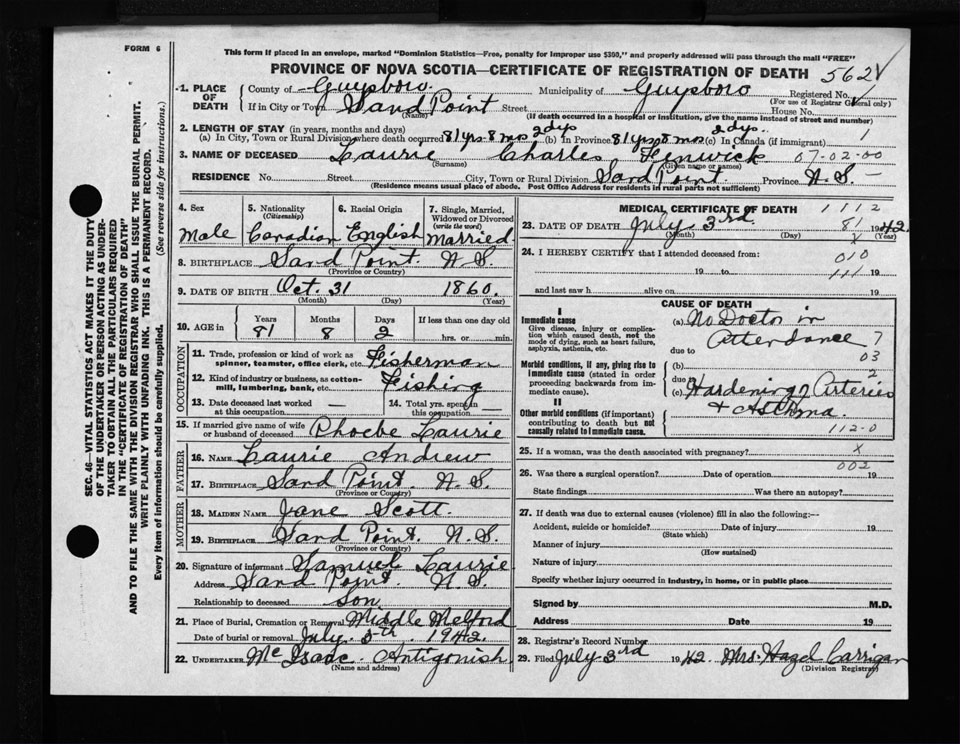 FORM 6
This form if placed in an envelope, marked "Dominion Statistics—Free, penalty for improper use $300," and properly addressed will pass through the mail "FREE"
PROVINCE OF NOVA SCOTIA—CERTIFICATE OF REGISTRATION OF DEATH 562
1. PLACE OF DEATH
County of Guysboro Municipality of Guysboro Registered No.
(For use of Registrar General only)
If in City or Town Sand Point Street House No.
(Name) (If death occurred in a hospital or institution, give the name instead of street and number)
2. LENGTH OF STAY (in years, months and days)
(a) In City, Town or Rural Division where death occurred 81 yrs 8 mos 2 dys (b) In Province 81 yrs 8 mos 2 dys. (c) In Canada (if immigrant) 1
3. NAME OF DECEASED Laurie Charles Fenwick 07-02-00
(Surname) (Given name or names)
RESIDENCE No. Street City, Town or Rural Division Sand Point Province N.S.
(Residence means usual place of abode. Post Office Address for residents in rural parts not sufficient)
4. Sex Male
5. Nationality (Citizenship) Canadian
6. Racial Origin English
7. Single, Married, Widowed or Divorced (write the word) Married
8. BIRTHPLACE Sand Point. N.S.
(Province or Country)
9. DATE OF BIRTH Oct. 31 1860.
(Month) (Day) (Year)
10. AGE in Years Months Days If less than one day old
81 8 2 hrs. or min.
OCCUPATION
11. Trade, profession or kind of work as spinner, teamster, office clerk, etc. Fisherman
12. Kind of industry or business, as cotton-mill, lumbering, bank, etc. Fishing
13. Date deceased last worked at this occupation —
14. Total yrs. spent in this occupation —
15. If married give name of wife or husband of deceased Phoebe Laurie
FATHER
16. NAME Laurie Andrew
17. BIRTHPLACE Sand Point N.S.
(Province or Country)
MOTHER
18. MAIDEN NAME Jane Scott.
19. BIRTHPLACE Sand Point. N.S.
(Province or Country)
20. Signature of informant Samuel Laurie
Address Sand Point. N.S.
Relationship to deceased Son
21. Place of Burial, Cremation or Removal Middle Melford
Date of burial or removal July. 5th. 1942.
22. UNDERTAKER McIsaac Antigonish
(Name and address)
MEDICAL CERTIFICATE OF DEATH 1112
23. DATE OF DEATH July 3rd 81 1942
(Month) (Day) (Year)
24. I HEREBY CERTIFY that I attended deceased from: x 010
19 to 111 19
and last saw h alive on 19
CAUSE OF DEATH
I
Immediate cause
Give disease, injury or complication which caused death, not the mode of dying, such as heart failure, asphyxia, asthenia, etc.
(a) No Doctor in Attendance 7
due to 03
Morbid conditions, if any, giving rise to immediate cause (stated in order proceeding backwards from immediate cause).
(b) 2
due to
(c) Hardening of Arteries
II
Other morbid conditions (if important) contributing to death but not causally related to immediate cause.
+ Asthma.
112-0
25. If a woman, was the death associated with pregnancy? x
002
26. Was there a surgical operation? Date of operation 19
State findings Was there an autopsy?
27. If death was due to external causes (violence) fill in also the following:—
Accident, suicide or homicide? Date of injury 19
(State which)
Manner of injury
(How sustained)
Nature of injury
Specify whether injury occurred in industry, in home, or in public place
Signed by M.D.
Address Date 19
28. Registrar's Record Number
29. Filed July 3rd 1942. Mrs. Hazel Carrigan
(Division Registrar)
SEC. 46—VITAL STATISTICS ACT MAKES IT THE DUTY
OF THE UNDERTAKER OR PERSON ACTING AS UNDER-
TAKER TO OBTAIN ALL THE PARTICULARS REQUIRED
IN THE "CERTIFICATE OF REGISTRATION OF DEATH"
AND TO FILE THE SAME WITH THE DIVISION REGISTRAR WHO SHALL ISSUE THE BURIAL PERMIT.
WRITE PLAINLY WITH UNFADING INK. THIS IS A PERMANENT RECORD.
Every item of information should be carefully supplied. (See reverse side for instructions.)